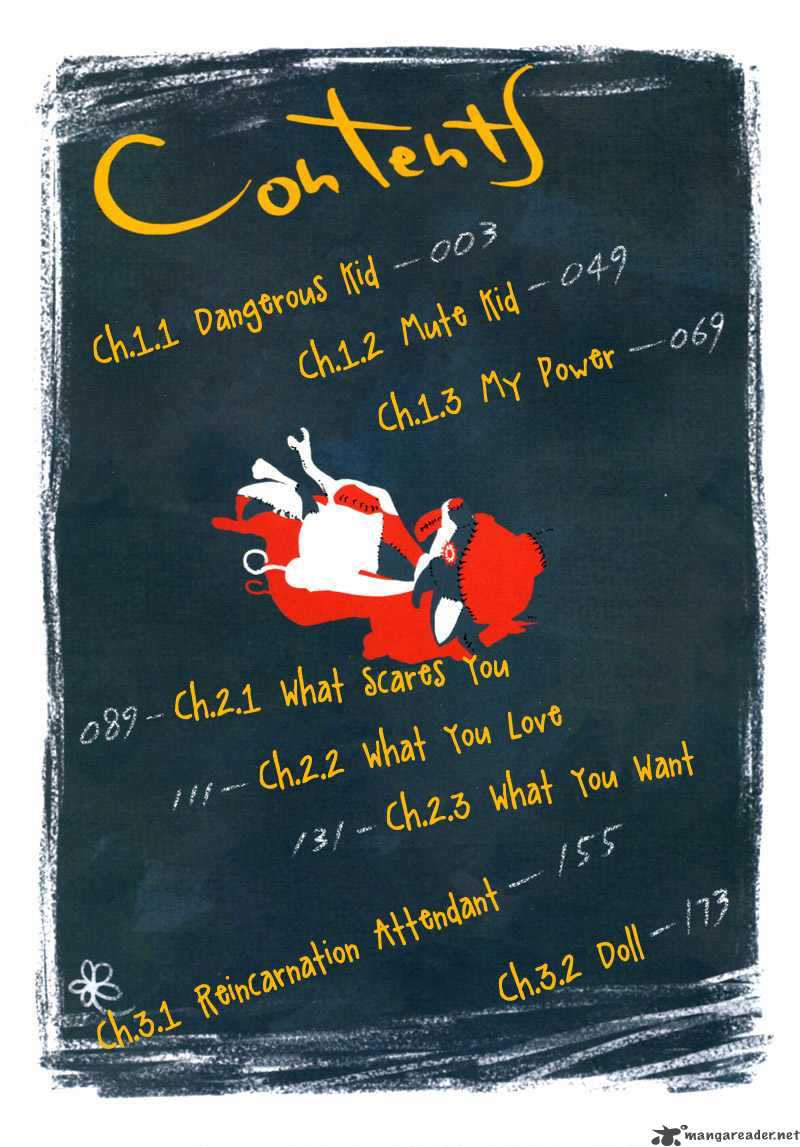 Contents
Ch.1.1 Dangerous Kid — 003
Ch.1.2 Mute Kid — 049
Ch.1.3 My Power — 069
089 — Ch.2.1 What Scares You
111 — Ch.2.2 What You Love
131 — Ch.2.3 What You Want
Ch.3.1 Reincarnation Attendant — 155
Ch.3.2 Doll — 173
mangareader.net